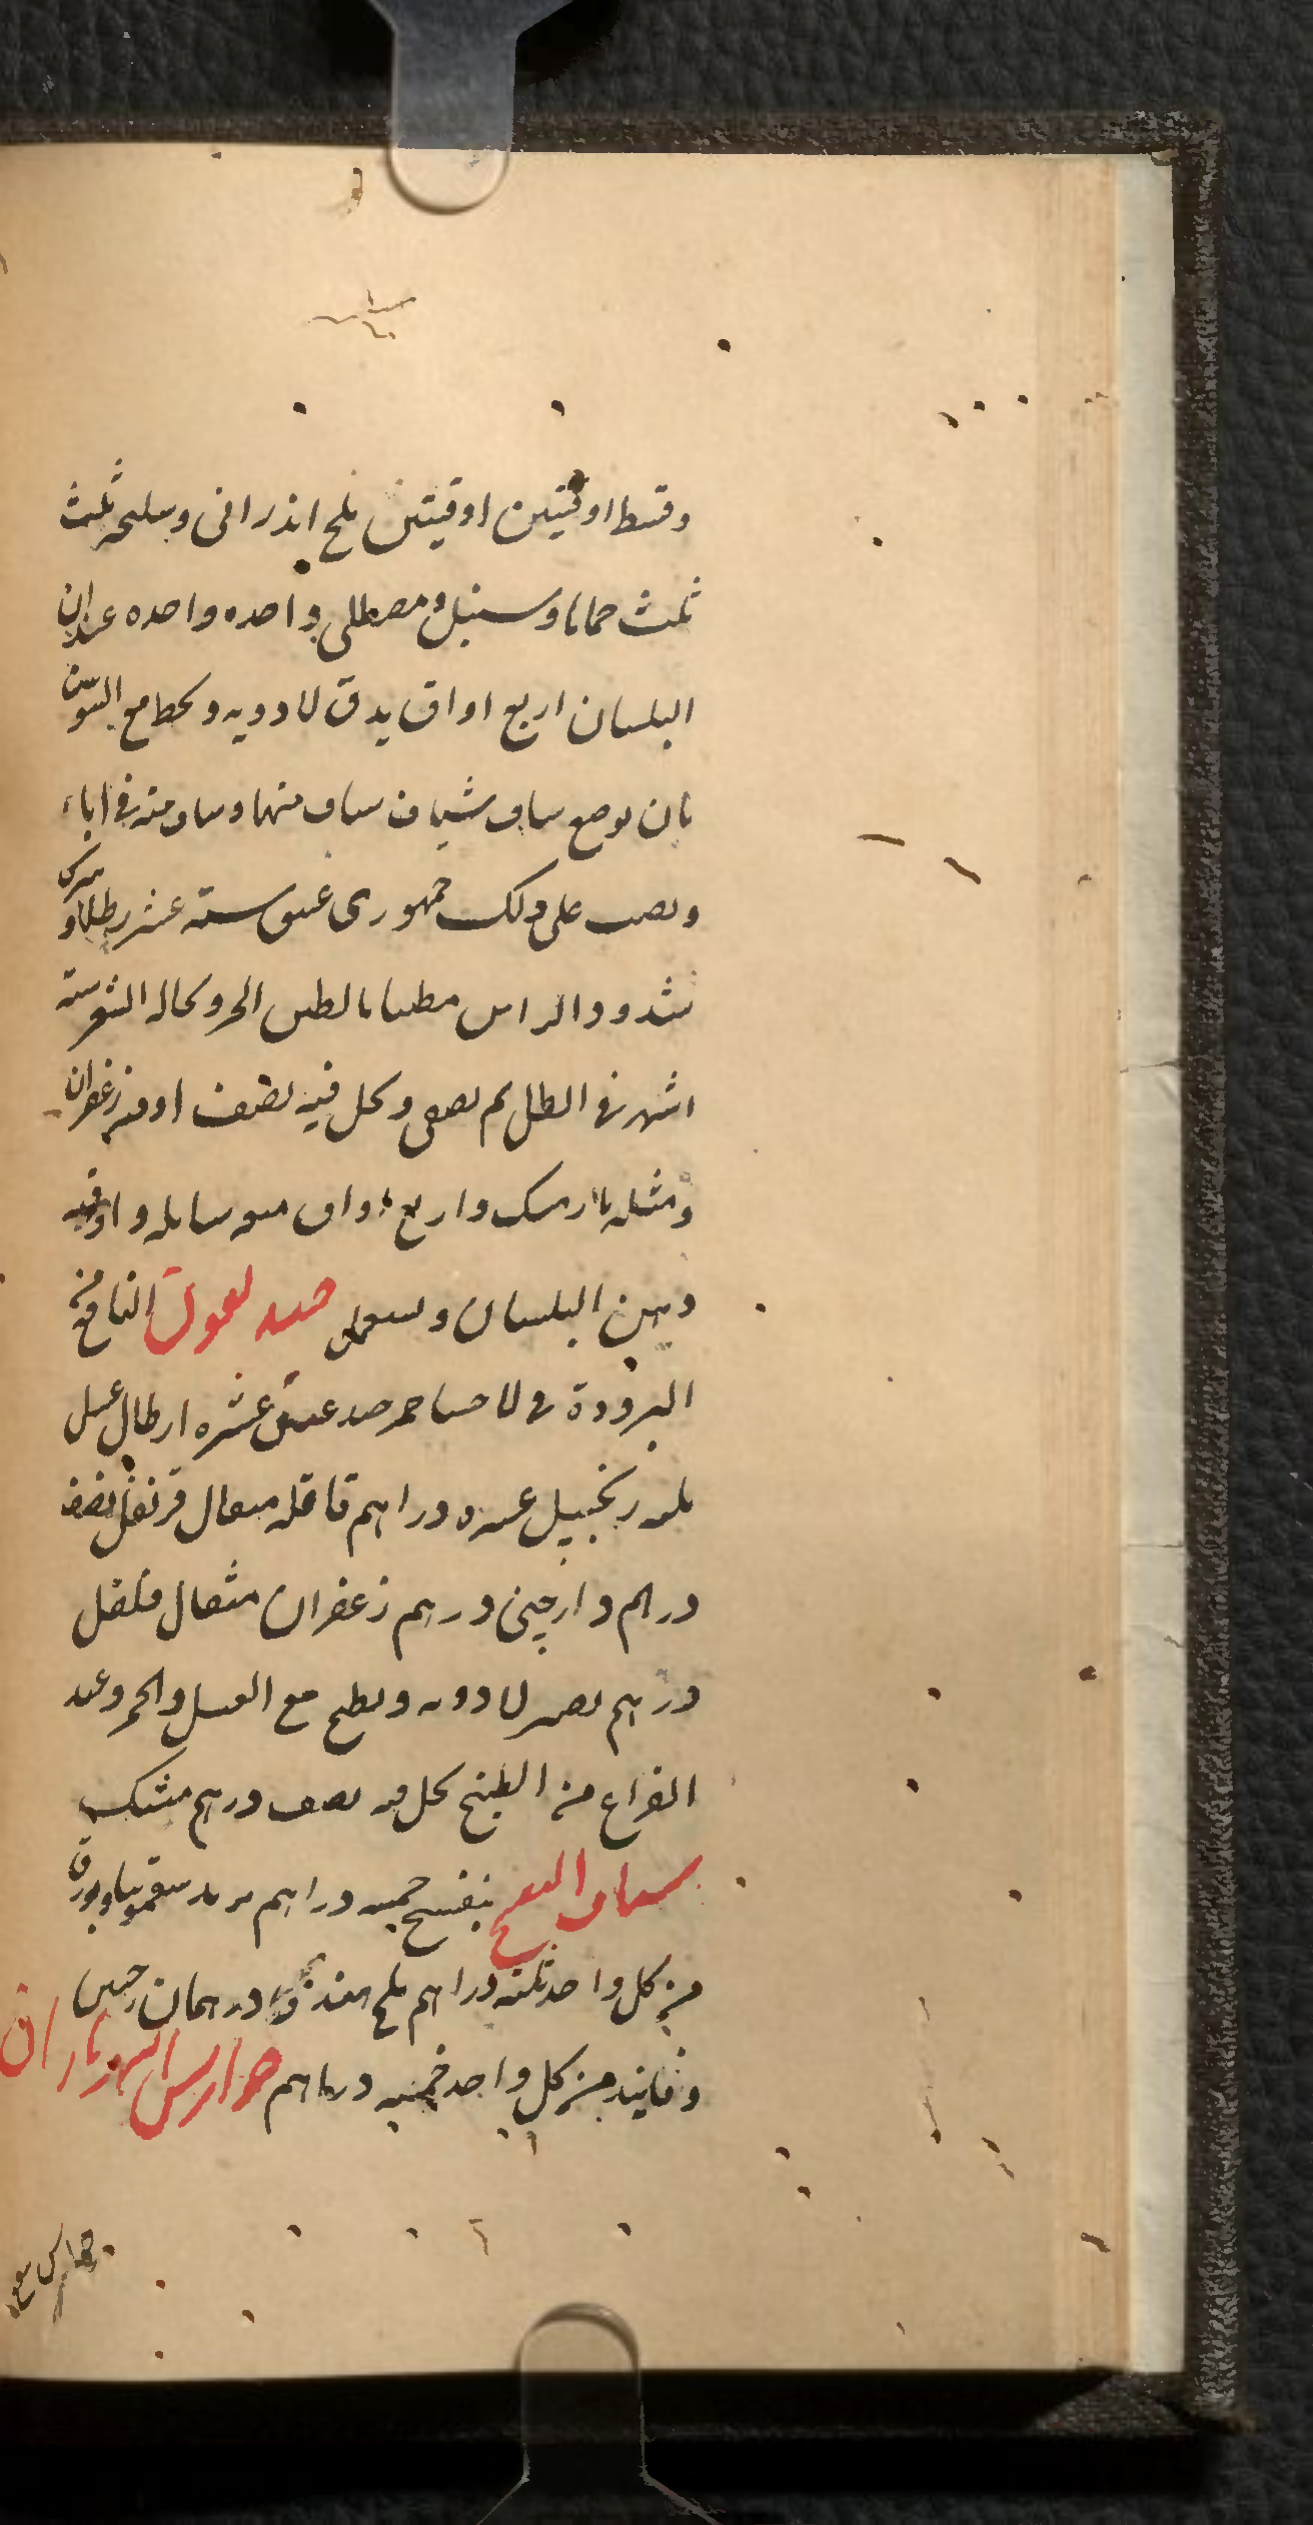 وقسط اوقيتين اوقيتين ملح اندرانى وسليخه ثلث
ثلث حماما وسنبل ومصطكى واحده واحده عيدان
البلسان اربع اواق يدق لادويه ويخلط مع السوسن
بان يوضع ساف منها وساف منه فى اناء
ويصب على ذلك جمهورى عتيق سته عشر رطلا ويترك
مشدود الراس مطينا بالطين الحر وكاله الشعر سته
اشهر فى الظل ثم يصفى ويحل فيه نصف اوقيه زعفران
ومثله مسك واربع اواق ميعه سايله واوقيه
دهن البلسان ويستعمل النافع
البرودة فى لاحشا خمر جيد عتيق عشره ارطال عسل
زنجبيل عشره دراهم قاقله مثقال قرنفل نصف
درهم دارچينى درهم زعفران مثقال فلفل
درهم لادويه ويطبخ مع العسل والخمر وعند
الفراغ من الطبخ يحل فيه نصف درهم مسك
بنفسج خمسه دراهم تربد سقمونيا وبورق
من كل واحد ثلثه دراهم ملح هندى درهمان
وفانيد من كل واحد خمسه دراهم جوارش الشهرياران